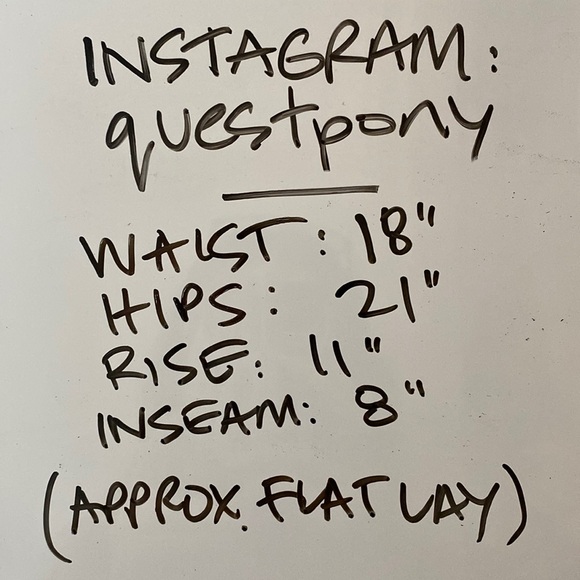 INSTAGRAM:
questpony
WAIST: 18"
HIPS: 21"
RISE: 11"
INSEAM: 8"
(APPROX. FLAT LAY)